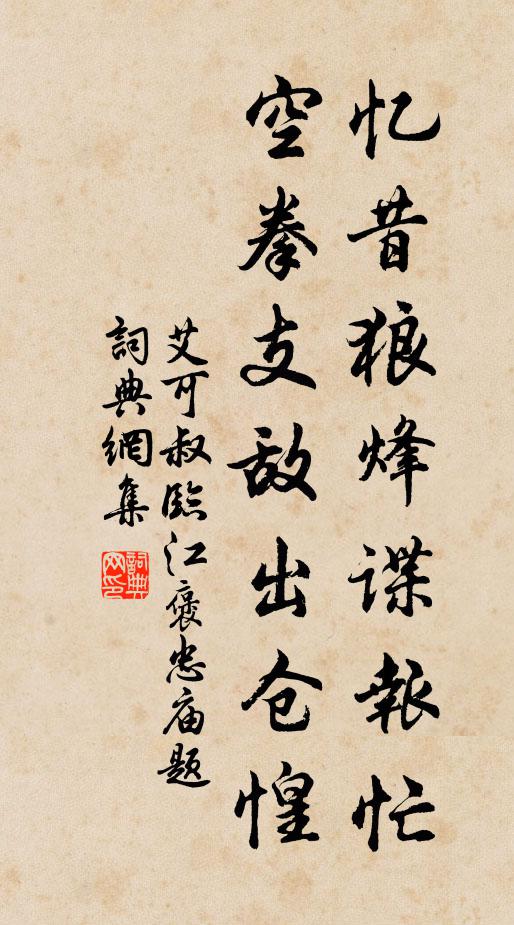 忆昔狼烽谍報忙
空拳支敌出仓惶
艾可叔臨江褒忠庙题
詞典網集
詞典网印